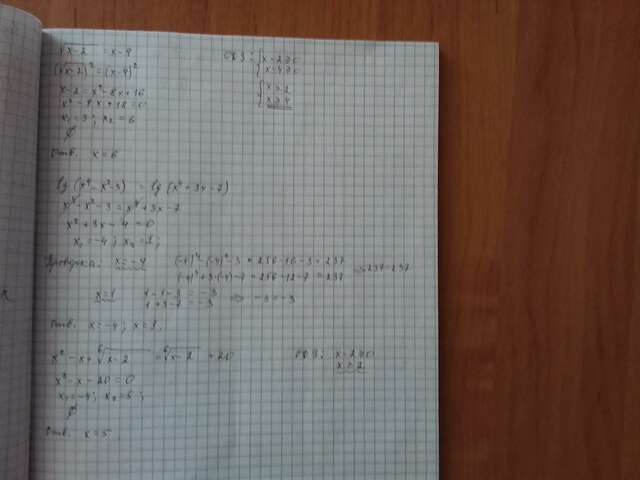 √x-2 = x-4
ОДЗ: {x-2≥0
{x-4≥0
(√x-2)² = (x-4)²
x-2 = x²-8x+16
{x≥2
{x≥4
x²-9x+18=0
x₁=3; x₂=6
∅
Отв. x=6
lg(x⁴-x²-3) = lg(x⁴+3x-7)
x⁴-x²-3 = x⁴+3x-7
x²+3x-4=0
x₁=-4; x₂=1;
Проверка: x=-4 (-4)⁴-(-4)²-3 = 256-16-3 = 237
(-4)⁴+3·(-4)-7 = 256-12-7 = 237 ⇒ 237=237
x=1 1-1-3 = -3
1+3-7 = -3 ⇒ -3=-3
Отв. x=-4; x=1.
x²-x+⁶√x-2 = ⁶√x-2 +20
ОДЗ: x-2≥0
x≥2
x²-x-20=0
x₁=-4; x₂=5;
∅
Отв. x=5